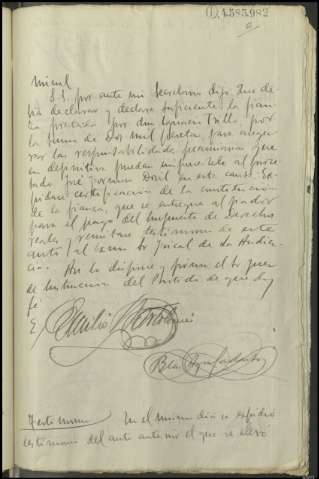 (1.585.982
S.S. por ante mi Secretario dijo: Que de-
bia declarar y declara suficiente la fian-
za prestada por don Trillo por
la suma de Dos mil pesetas, para asegu-
rar las responsabilidades pecuniarias que
en definitiva puedan imponersele al proce-
sado en esta causa. Ex-
pidase certificacion de la constitucion
de la fianza, que se entregue al fiador
para el pago del impuesto de Derechos
reales y remitase testimonio de este
auto al Fiscal de la Audien-
cia. Asi lo dispuso y firma el Sr Juez
de Instruccion del Partido de que doy
fe.
Emilio
Blas
Testimonio En el mismo dia se expidio
testimonio del auto anterior el que se elevó